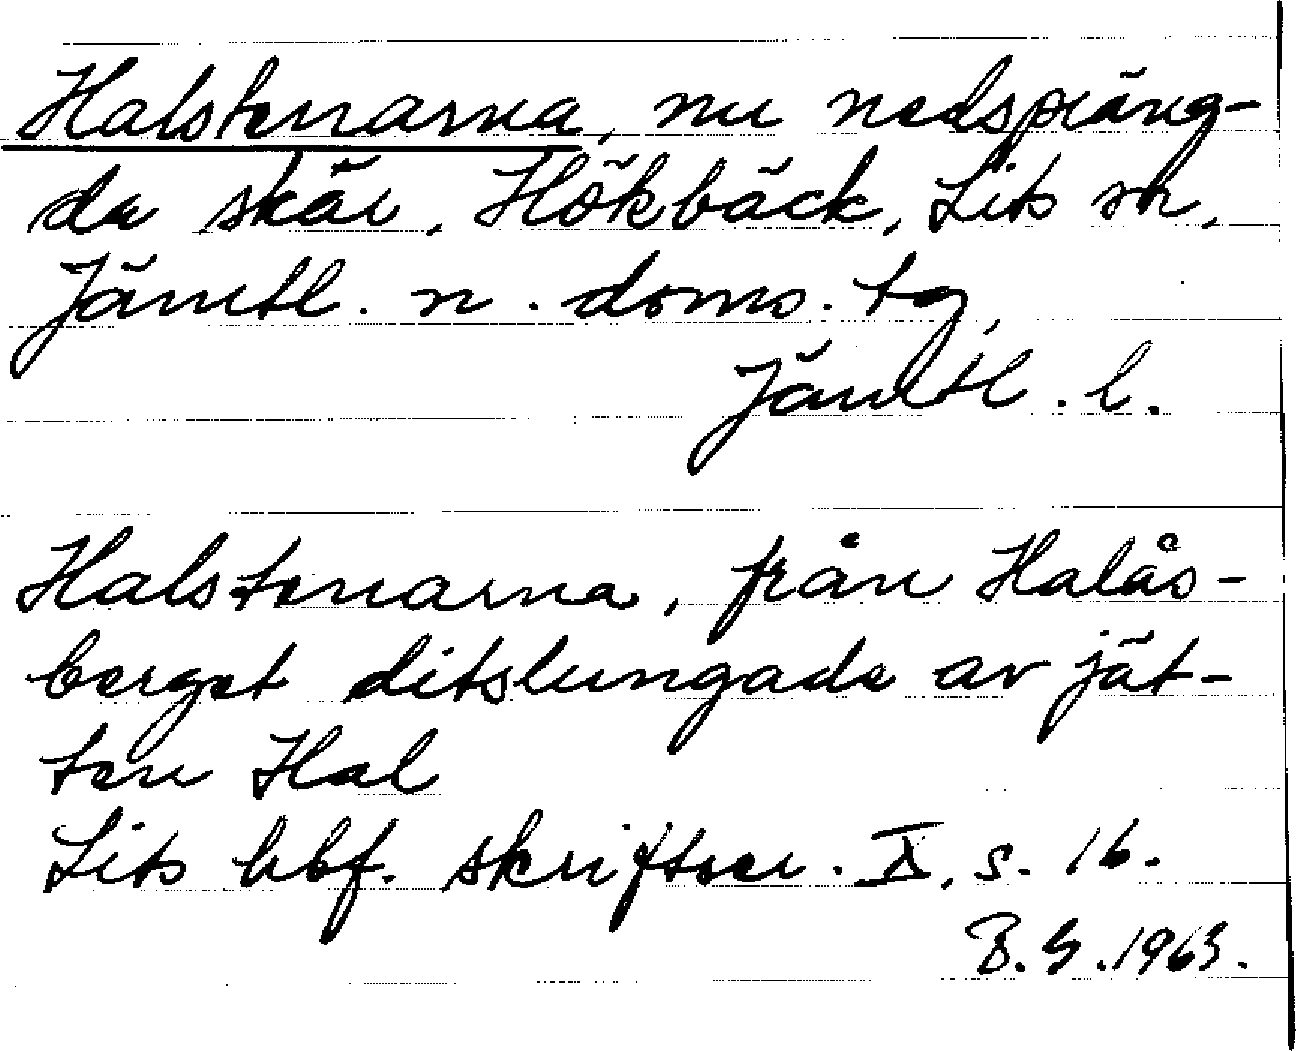 Halstenarna, nu nedspräng-
da skär, Hökbäck, Lits sn,
Jämtl. n. doms. tg,
Jämtl. l.
Halstenarna, från Halås-
berget ditslungade av jät-
ten Hal
Lits hbf. skriftser. X, s. 16.
B. G. 1963.